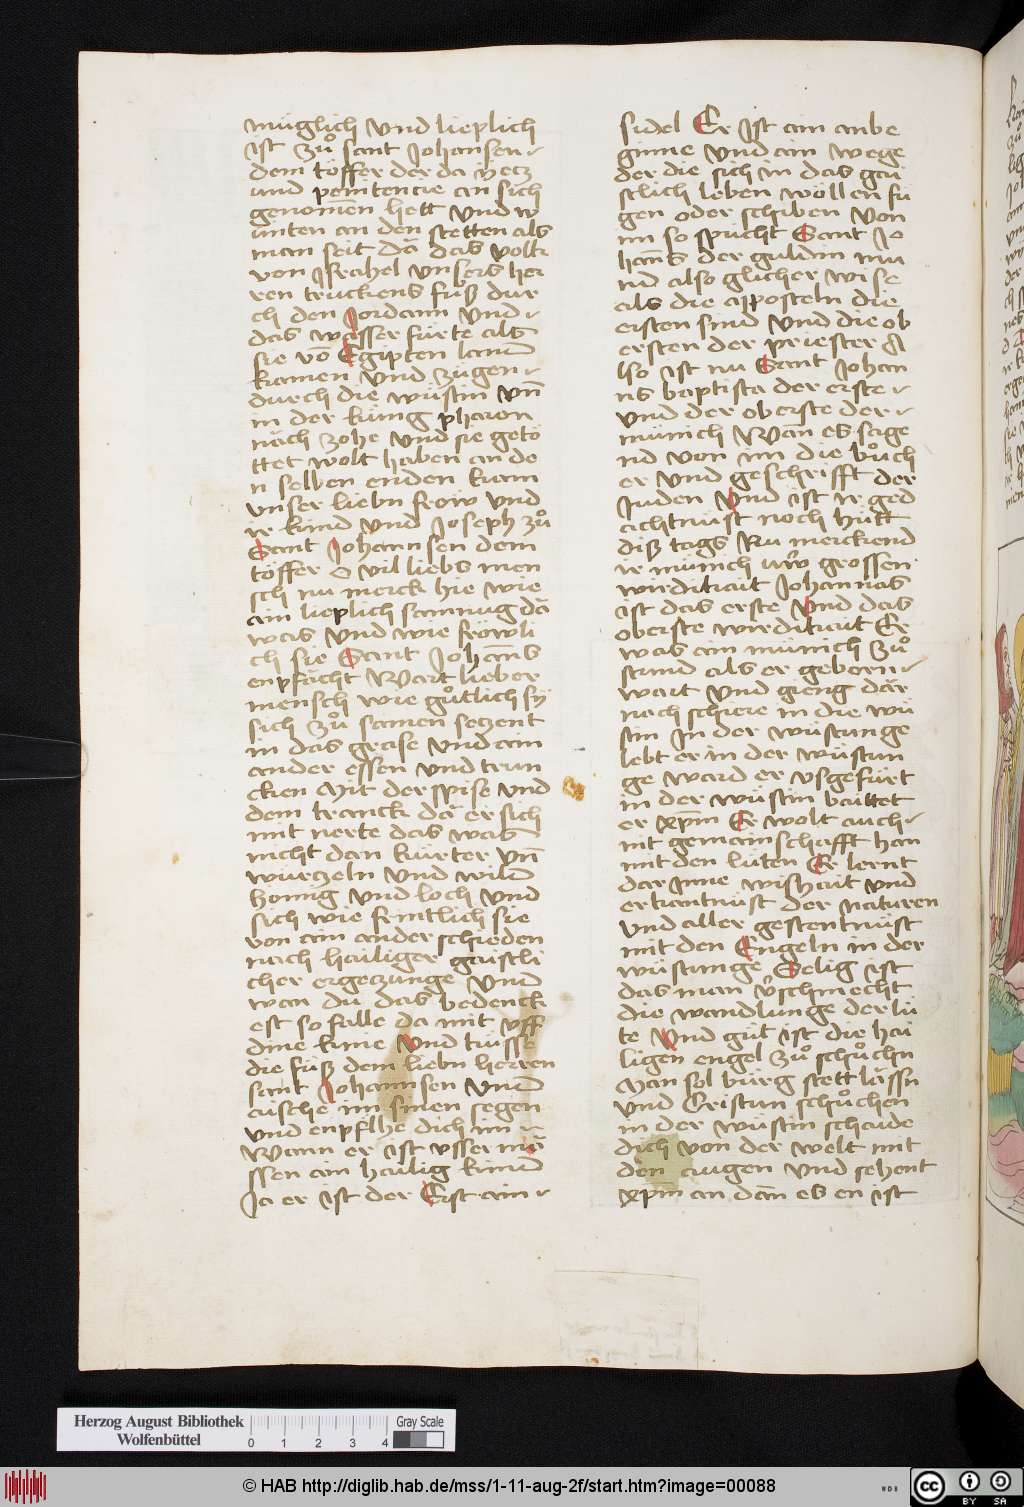 müglich vnd lieplich
ist zů sant Johansen
dem töffer der da yecz
und penitencie an sich
genomen hett vnd w
ůnten an den stetten als
man seit dā das volk
von Jsrahel vnsers her
ren truckens fuß dur
ch den Jordann vnd
das wasser fürte als
sie vō Egipten lannd
kamen vnd zugen
durch die wüstin vn̄
in der küng pharon
nāch zohe vnd sie getö
ttet wolt haben an de
n selben enden kam
vnser liebn frow vnd
ir kind vnd Joseph zů
Sant Johannsen dem
töffer O vil liebs men
sch nu merck hie wie
ain lieplich samnug dā
was vnd wie fröwli
ch sie Sant Johan̄s
enpfächt Wart lieber
mensch wie gůtlich sÿ
sich zů samen seczent
in das grase vnd ain
ander essen vnd trun
cken Mit der spise vnd
dem tranck dā er sich
mit nerte das was
nicht dan kürter vn̄
würczeln vnd wild
honig vnd loch vnd
sich wie frintlich sie
von ain ander schieden
nach hailiger gaistli
cher ergeczunge vnd
wan du das bedenck
est so falle da mit vff
dine knie vnd küsse
die füß dem liebn herren
sant Johannsen vnnd
aische im sinen segen
vnd enpfilhe dich im
Wann er ist vsser mā
ssen ain hailig kind
Ja er ist der Erst ain
sidel Er Jst ain anbe
ginne vnd ain wege
der die sich in das gai
stlich leben wöllen fü
gen oder schiben von
im so spricht Sant Jo
han̄s der guldin mu
nd also glicher wise
als die apposteln die
ersten sind vnd die ob
ersten der priester A
lso ist nu Sant Johan
ns baptista der erste
vnd der oberste der
münich Wan es sage
nd von im die bůch
er vnd geschrifft der
Juden vnd ist ir ged
achtnüst noch hütt
diß tags Nu merckend
ir münich uw̄ grossen
wirditait Johannas
ist das erste vnd das
oberste wirditait Er
was ain münich zů
stund als er geborn
wart vnd gieng dār
nach schiere in die wü
stin Jn der wüstunge
lebt er in der wüstun
ge ward er vsgefürt
in der wüstin baittet
er xpm Er wolt auch
nit gemainschafft han
mit den lüten Er lernt
dar Jnne wishait vnd
erkantnüst der naturen
vnd aller gestentnüst
mit den Engeln in der
wüstunge Selig ist
das man v̄schmecht
die wandlunge der lü
te vnd gůt ist die hai
ligen engel zů schůchn
Man sol bürg stett lāssn
vnd Cristum schůchen
in der wüstin schaide
dich von der welt mit
den augen vnd sehent
xpm an dān es en ist
Herzog August Bibliothek
Wolfenbüttel
0 1 2 3 4
Gray Scale
© HAB http://diglib.hab.de/mss/1-11-aug-2f/start.htm?image=00088
WDB
cc BY SA